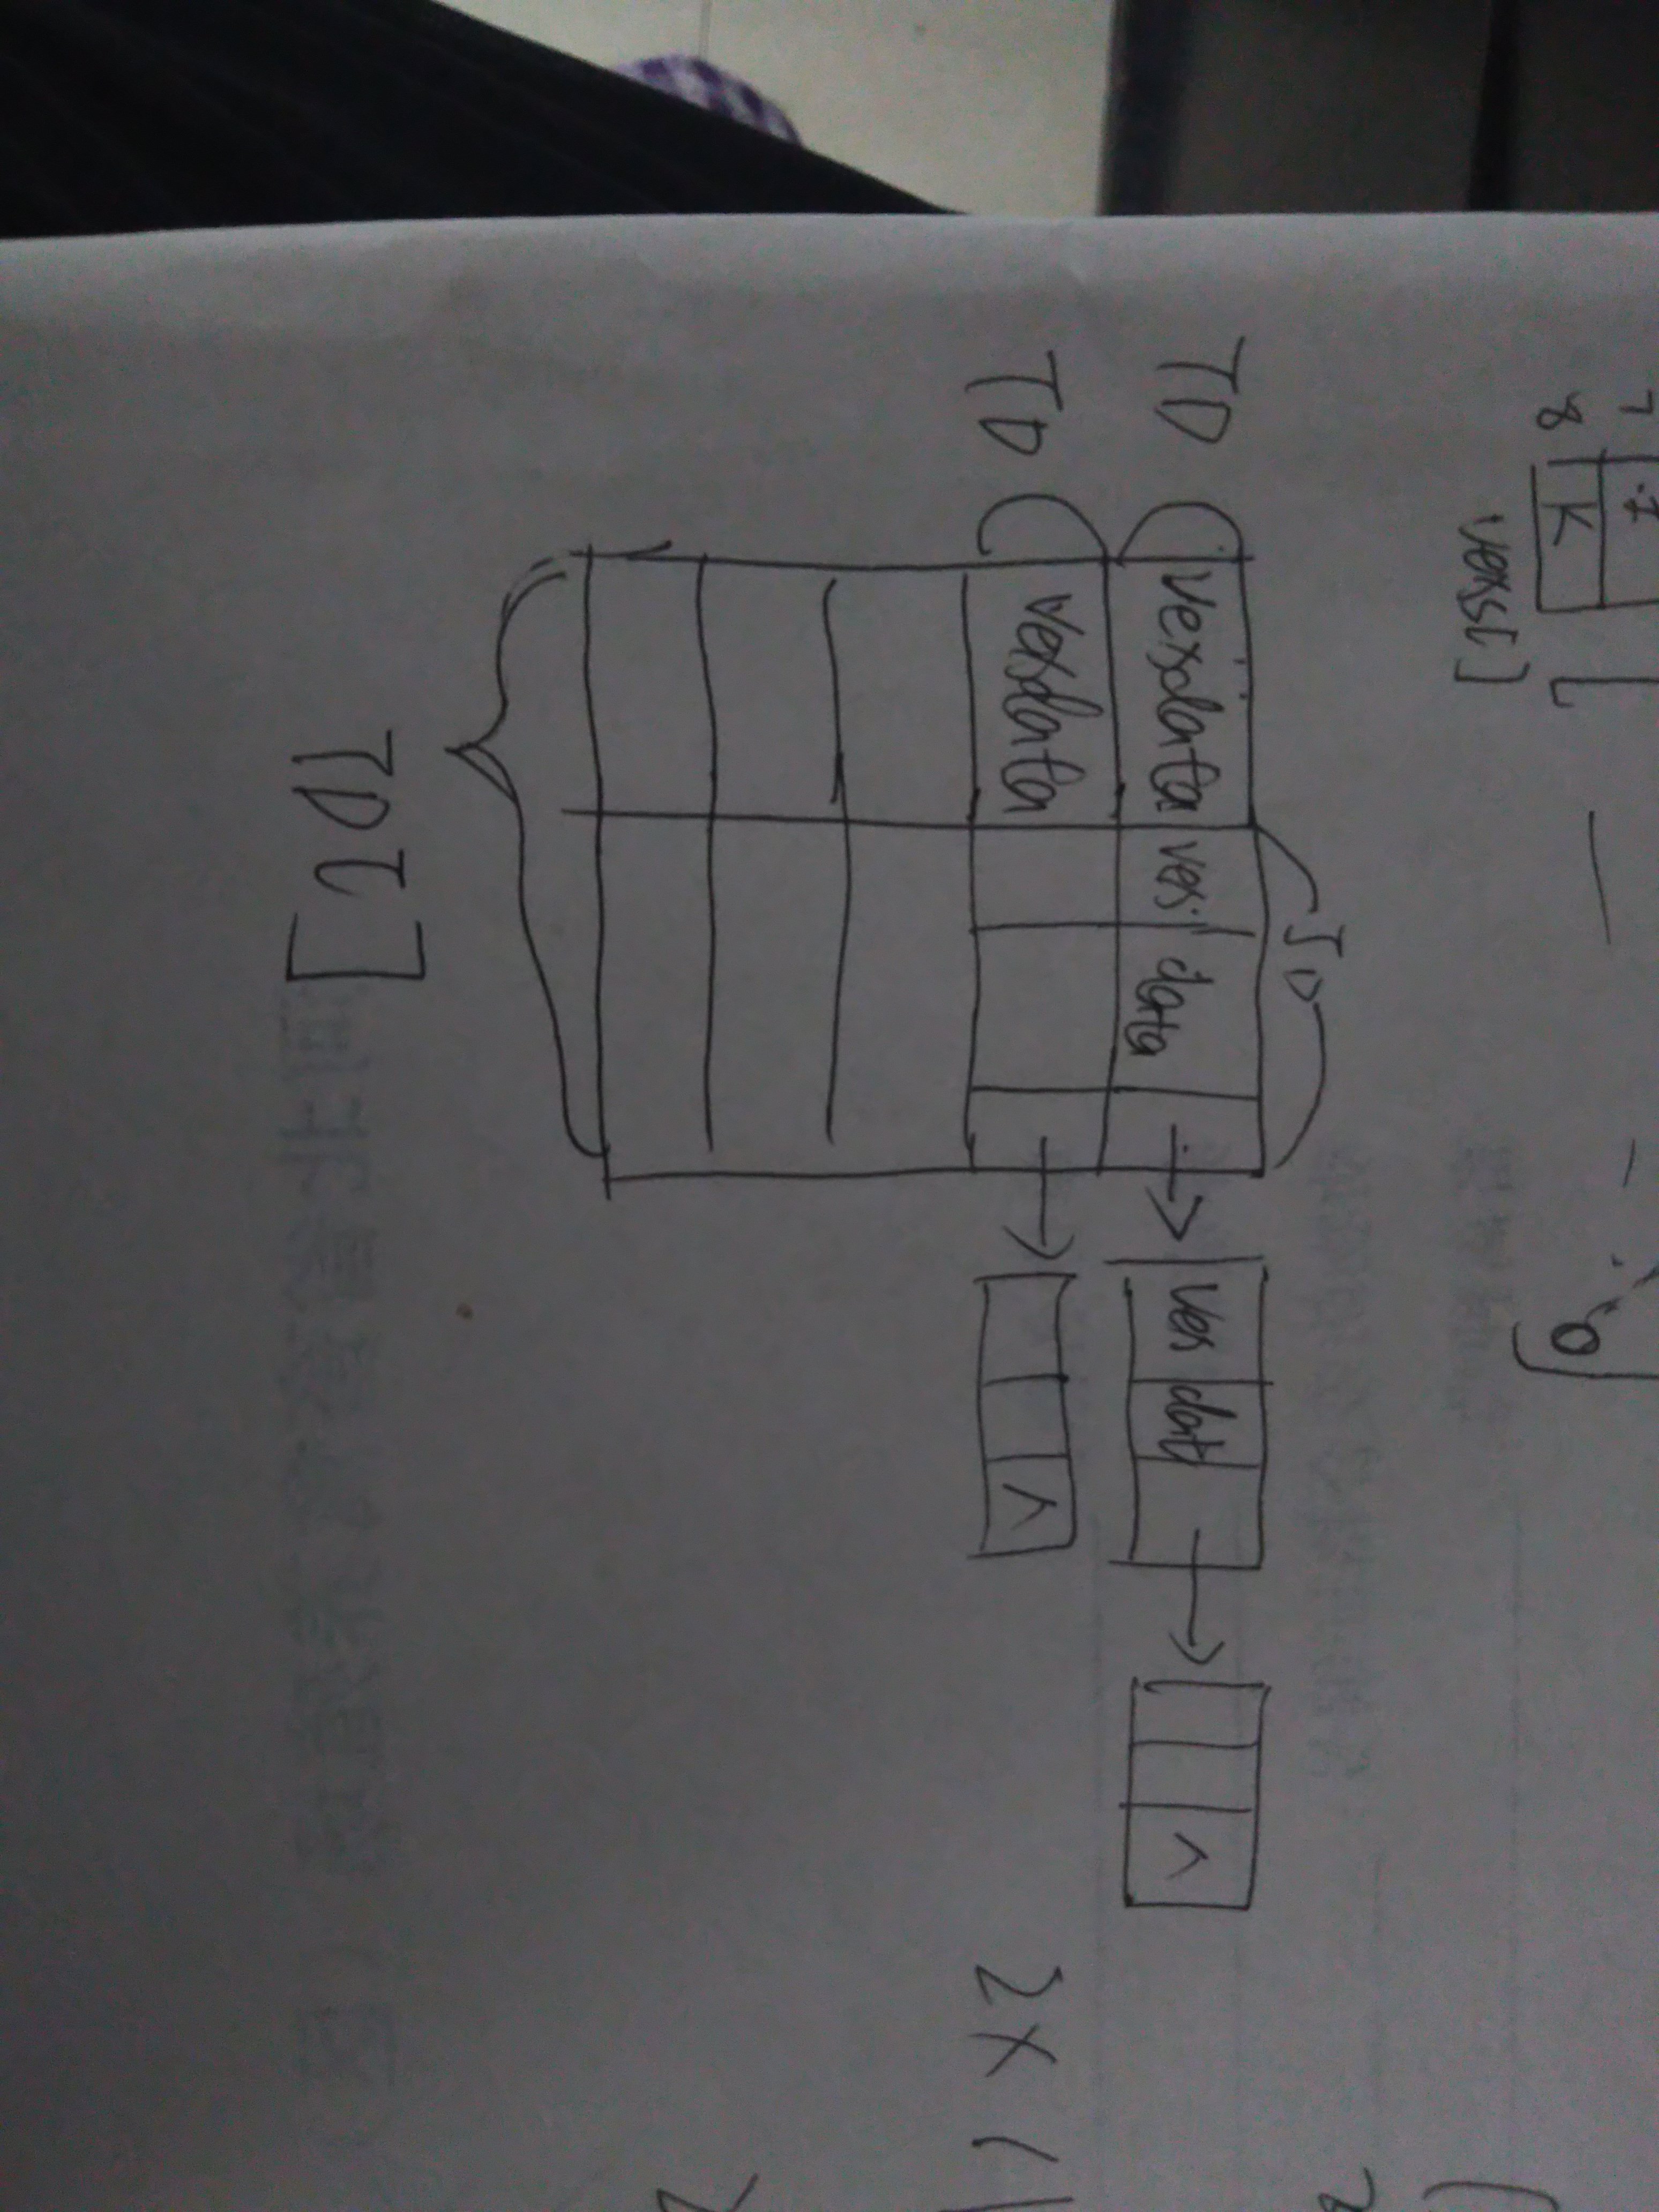 7 I
8 K
0
vexs[ ]
JD
TD vexdata ves data ves dat ^
TD vexdata ^
2X (
TD[ ]